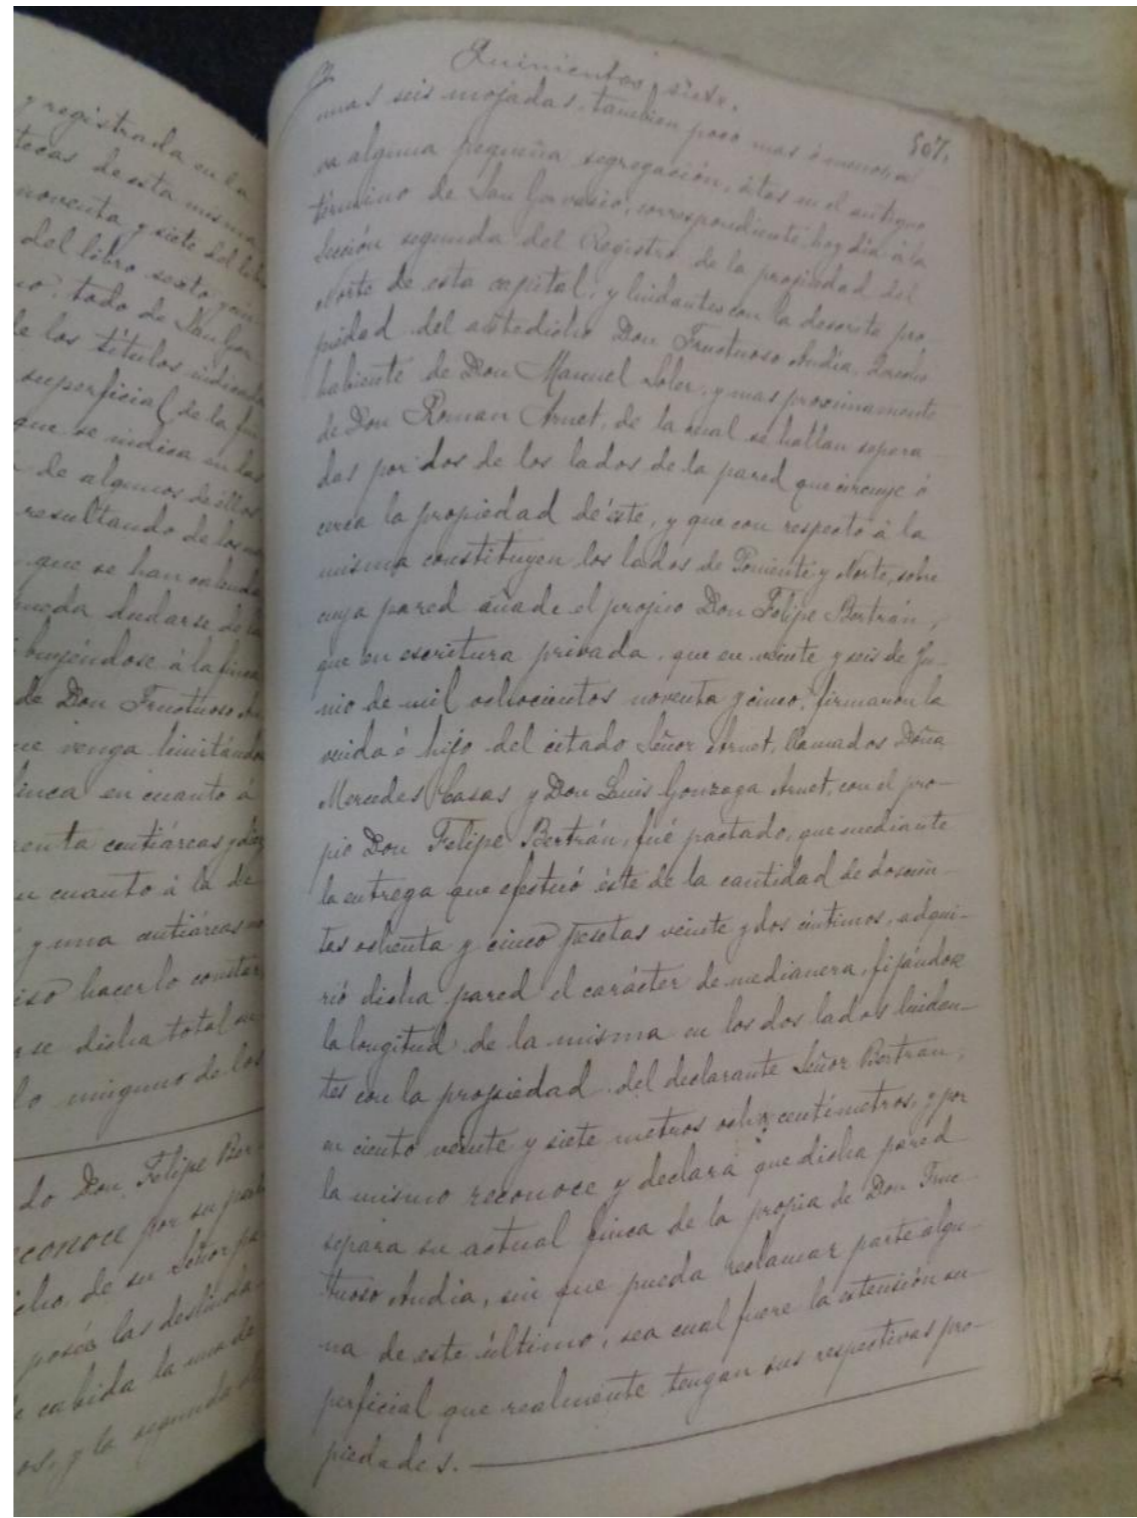 y registrada en la
tecas de esta misma
noventa y siete del libro
del libro sexto y
todo de San Ger
de los títulos indicada
superficial de la fin
que se indica en las
de algunos de éllos
resultando de los
que se han calcula
pueda dudarse de la
buyéndose á la finca
de Don Fructuoso
ue venga limitándo
finca en cuanto á
renta centiáreas y diez
en cuanto á la de
y una centiáreas
iso hacerlo constar
rse dicha total
lo ninguno de los
do Don Felipe Ber
econoce por su par
cho, de su Señor pa
poseía las deslinda
cabida la una de
os, y la segunda de
Quinientos siete.
507.
mas seis mojadas, tambien poco mas ó menos, sal
va alguna pequeña segregación, sitas en el antiguo
término de San Gervasio, correspondiente hoy día á la
Sección segunda del Registro de la propiedad del
Norte de esta capital, y lindantes con la descrita pro
piedad del antedicho Don Fructuoso Andía, derecho
habiente de Don Manuel Soler, y mas proximamente
de Don Roman Arnet, de la cual se hallan separa
das por dos de los lados de la pared que circuye ó
cerca la propiedad de éste, y que con respecto á la
misma constituyen los lados de Poniente y Norte, sobre
cuya pared añade el propio Don Felipe Bertrán,
que en escritura privada, que en veinte y seis de Ju-
nio de mil ochocientos noventa y cinco, firmaron la
viuda é hijo del citado Señor Arnet, llamados Doña
Mercedes Casas y Don Luis Gonzaga Arnet, con el pro-
pio Don Felipe Bertrán, fué pactado, que mediante
la entrega que efectuó éste de la cantidad de doscien-
tas ochenta y cinco pesetas veinte y dos céntimos, adqui-
rió dicha pared el carácter de medianera, fijándose
la longitud de la misma en los dos lados lindan-
tes con la propiedad del declarante Señor Bertrán,
en ciento veinte y siete metros ocho centímetros, y por
lo mismo reconoce y declara que dicha pared
separa su actual finca de la propia de Don Fruc
tuoso Andía, sin que pueda reclamar parte algu-
na de este último, sea cual fuere la extensión su-
perficial que realmente tengan sus respectivas pro-
piedades.